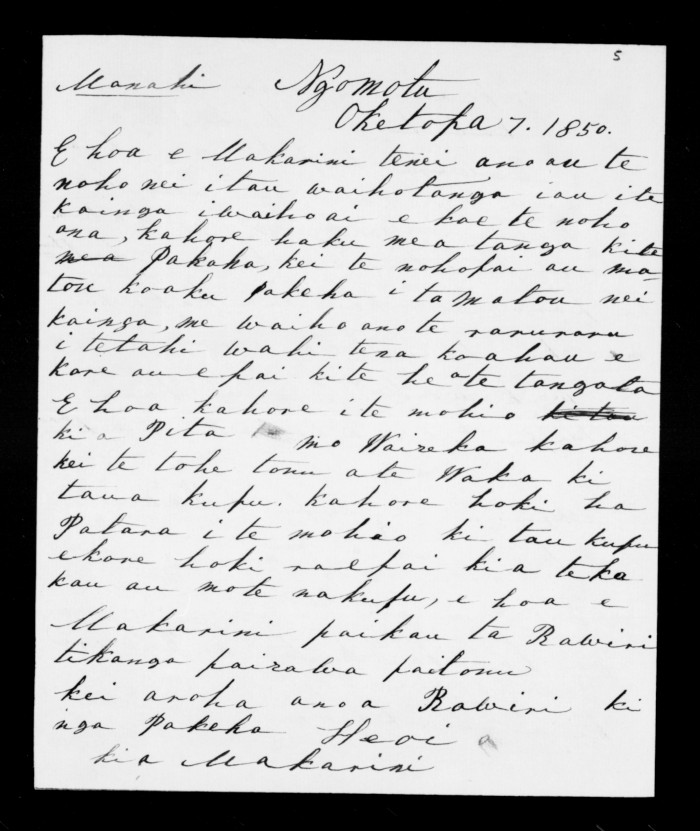 5
Manahi Ngomotu
Oketopa 7. 1850.
E hoa e Makarini tenei ano au te
noho nei i tau waihotanga iau i te
kainga i waiho ai e koe te noho
ana, kahore haku mea tanga kite
mea Pakeha, kei te noho pai au ma
tou ko aku Pakeha i ta matou nei
kainga, me waiho ano te raruraru
i tetahi wahi tena ko ahau e
kore au e pai kite he ate tangata
E hoa kahore i te mohio ki tau
ki a Pita mo Waireka kahore
kei te tohe tonu a te Waka ki
taua kupu. kahore hoki ha
Patara i te mohio ki tau kupu
ekore hoki ra e pai kia teka
kau au mote nakupu, e hoa e
Makarini paikau ta Rawiri
tikanga pairawa paitonu
kei aroha ano a Rawiri ki
nga Pakeha Heoi a
kia Makarini